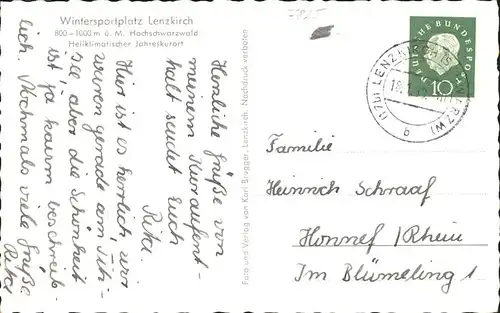 Wintersportplatz Lenzkirch
800–1000 m ü. M. Hochschwarzwald
Heilklimatischer Jahreskurort
Herzliche Grüße von
meinem Kuraufent-
halt sendet Euch
Rita.
Hier ist es herrlich, wir
waren gerade am Titi-
see aber die Schönheit
ist ja kaum beschreib-
lich. Nochmals viele Grüße
Rita
Foto und Verlag von Karl Brugger, Lenzkirch. Nachdruck verboten
DEUTSCHE BUNDESPOST
10
(17b) LENZKIRCH
b
Familie
Heinrich Schraaf
Honnef/Rhein
Im Blümeling 1